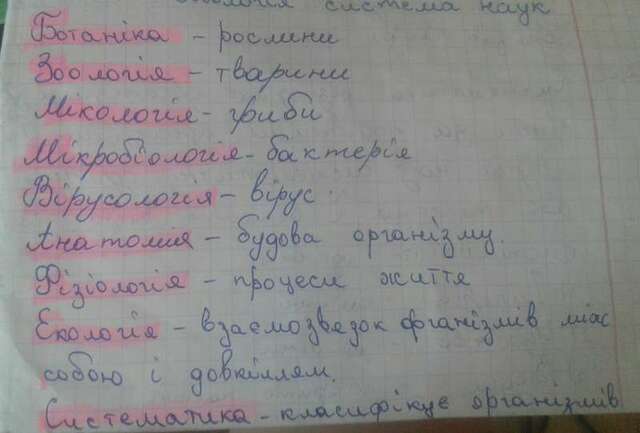 система наук
Ботаніка - рослини
Зоологія - тварини
Мікологія - гриби
Мікробіологія - бактерія
Вірусологія - вірус.
Анатомія - будова організму.
Фізіологія - процеси життя
Екологія - взаємозвязок організмів між
собою і довкіллям.
Систематика - класифікує організмів